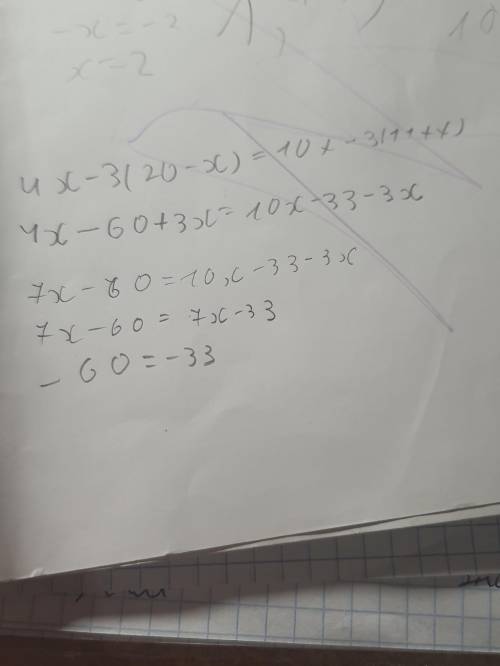 -x = -2
x = 2
10
4x - 3(20 - x) = 10x - 3(11 + x)
4x - 60 + 3x = 10x - 33 - 3x
7x - 60 = 10x - 33 - 3x
7x - 60 = 7x - 33
- 60 = -33